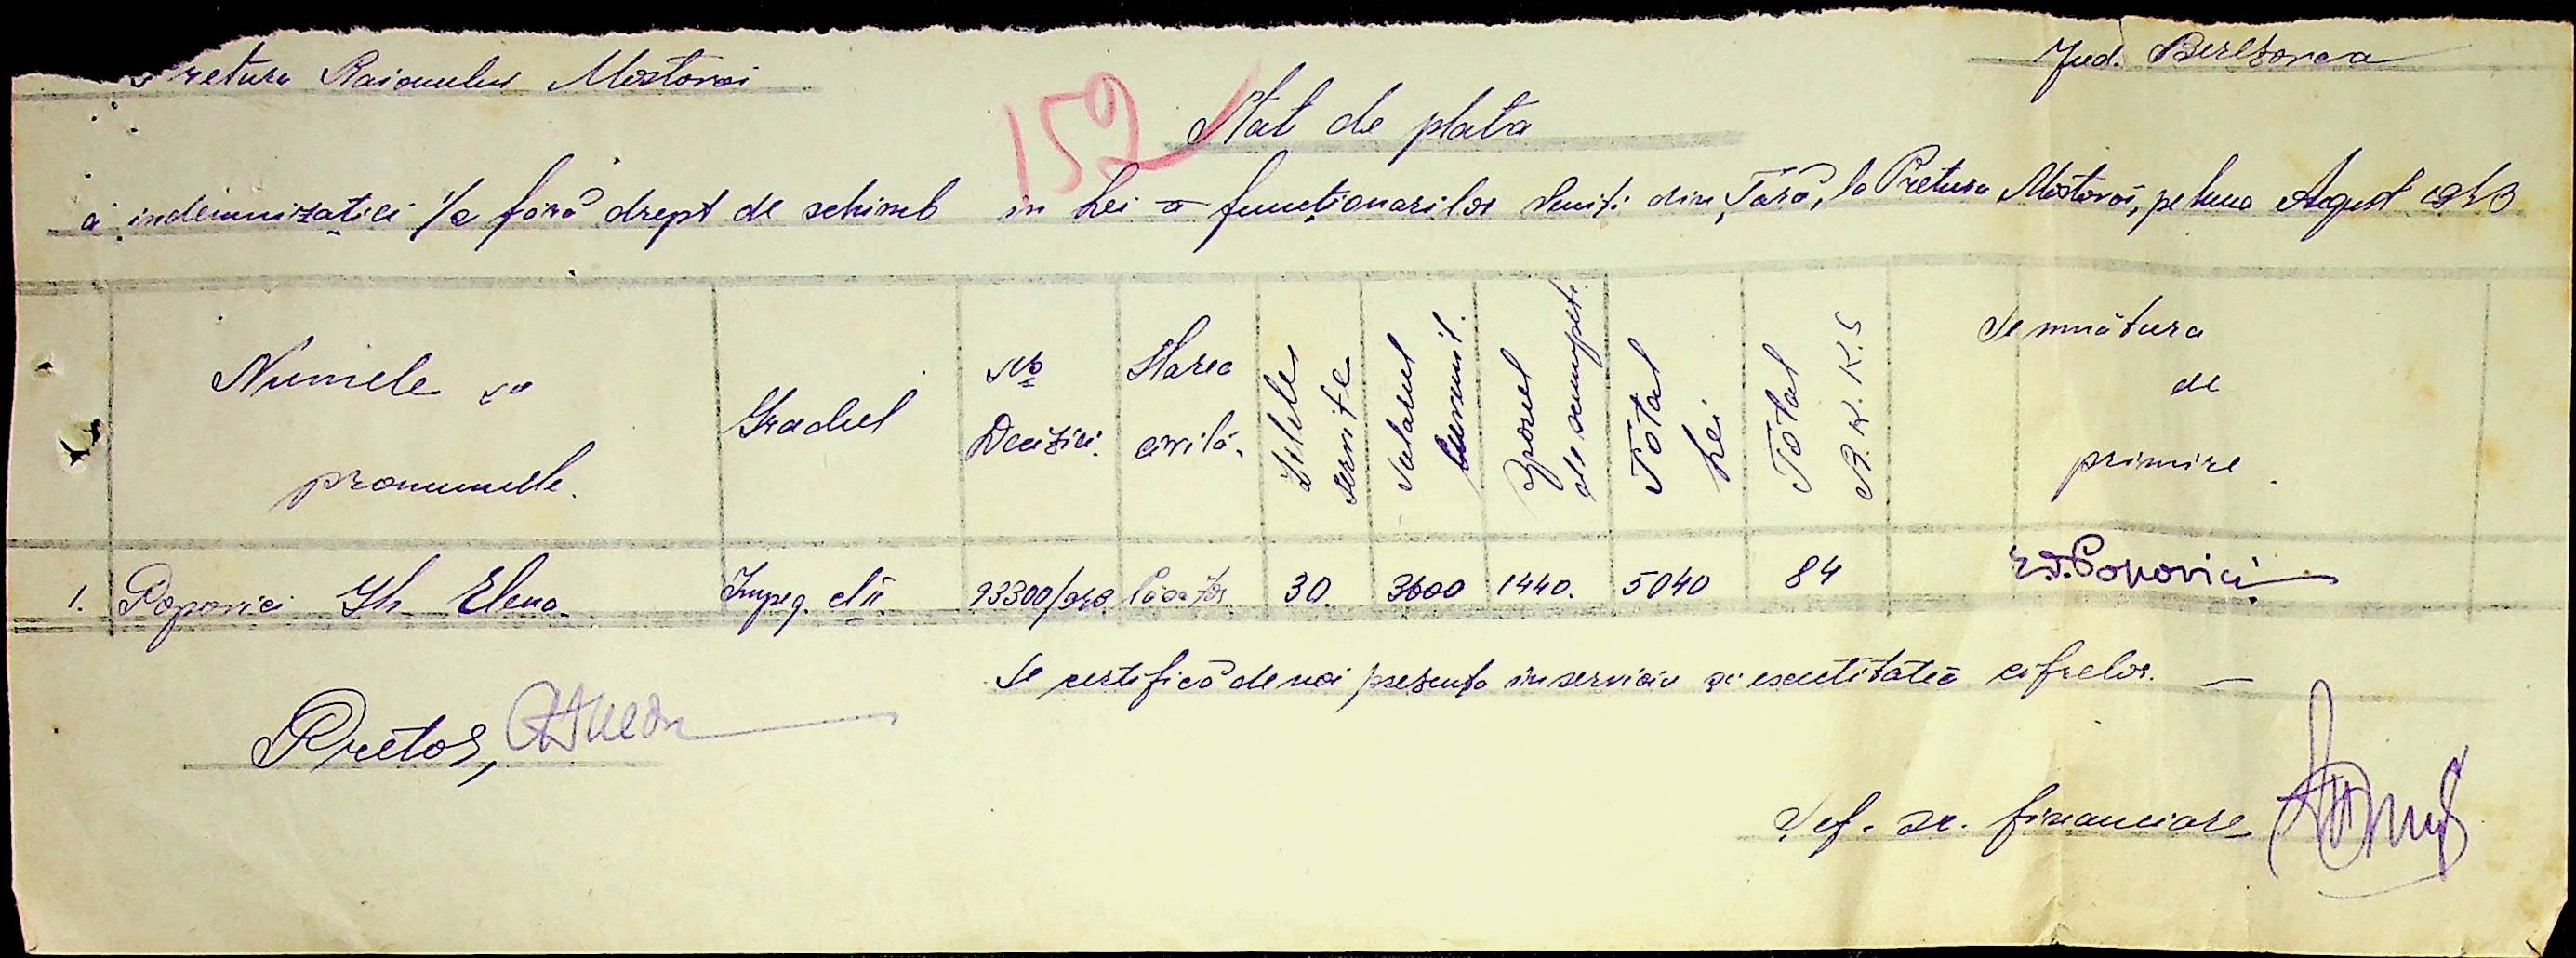 Pretura Raionului Mostovoi
Jud. Berezovca
152
Stat de plata
a indemnizației 1/2 fără drept de schimb in Lei a funcționarilor veniți din Țară, la Pretura Mostovoi, pe luna August 1943
Numele și
pronumele.
Gradul
No
Deciziei.
Starea
civilă.
Zilele
servite
Salariul
Cuvenit.
Sporul
de scumpete.
Total
Lei
Total
R.K.K.S
Semnătura
de
primire.
1. Popovici Gh Elena Impeg. cl II 93300/943 30. 3600 1440. 5040 84 Popovici
Se certifică de noi prezența in serviciu și exactitatea cifrelor. —
Pretor,
Șef. sr. financiare